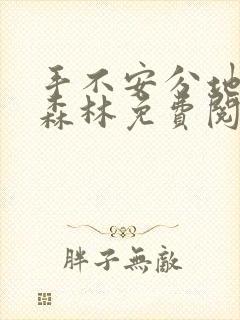 手不安分地
森林免費閱
胖子無敵